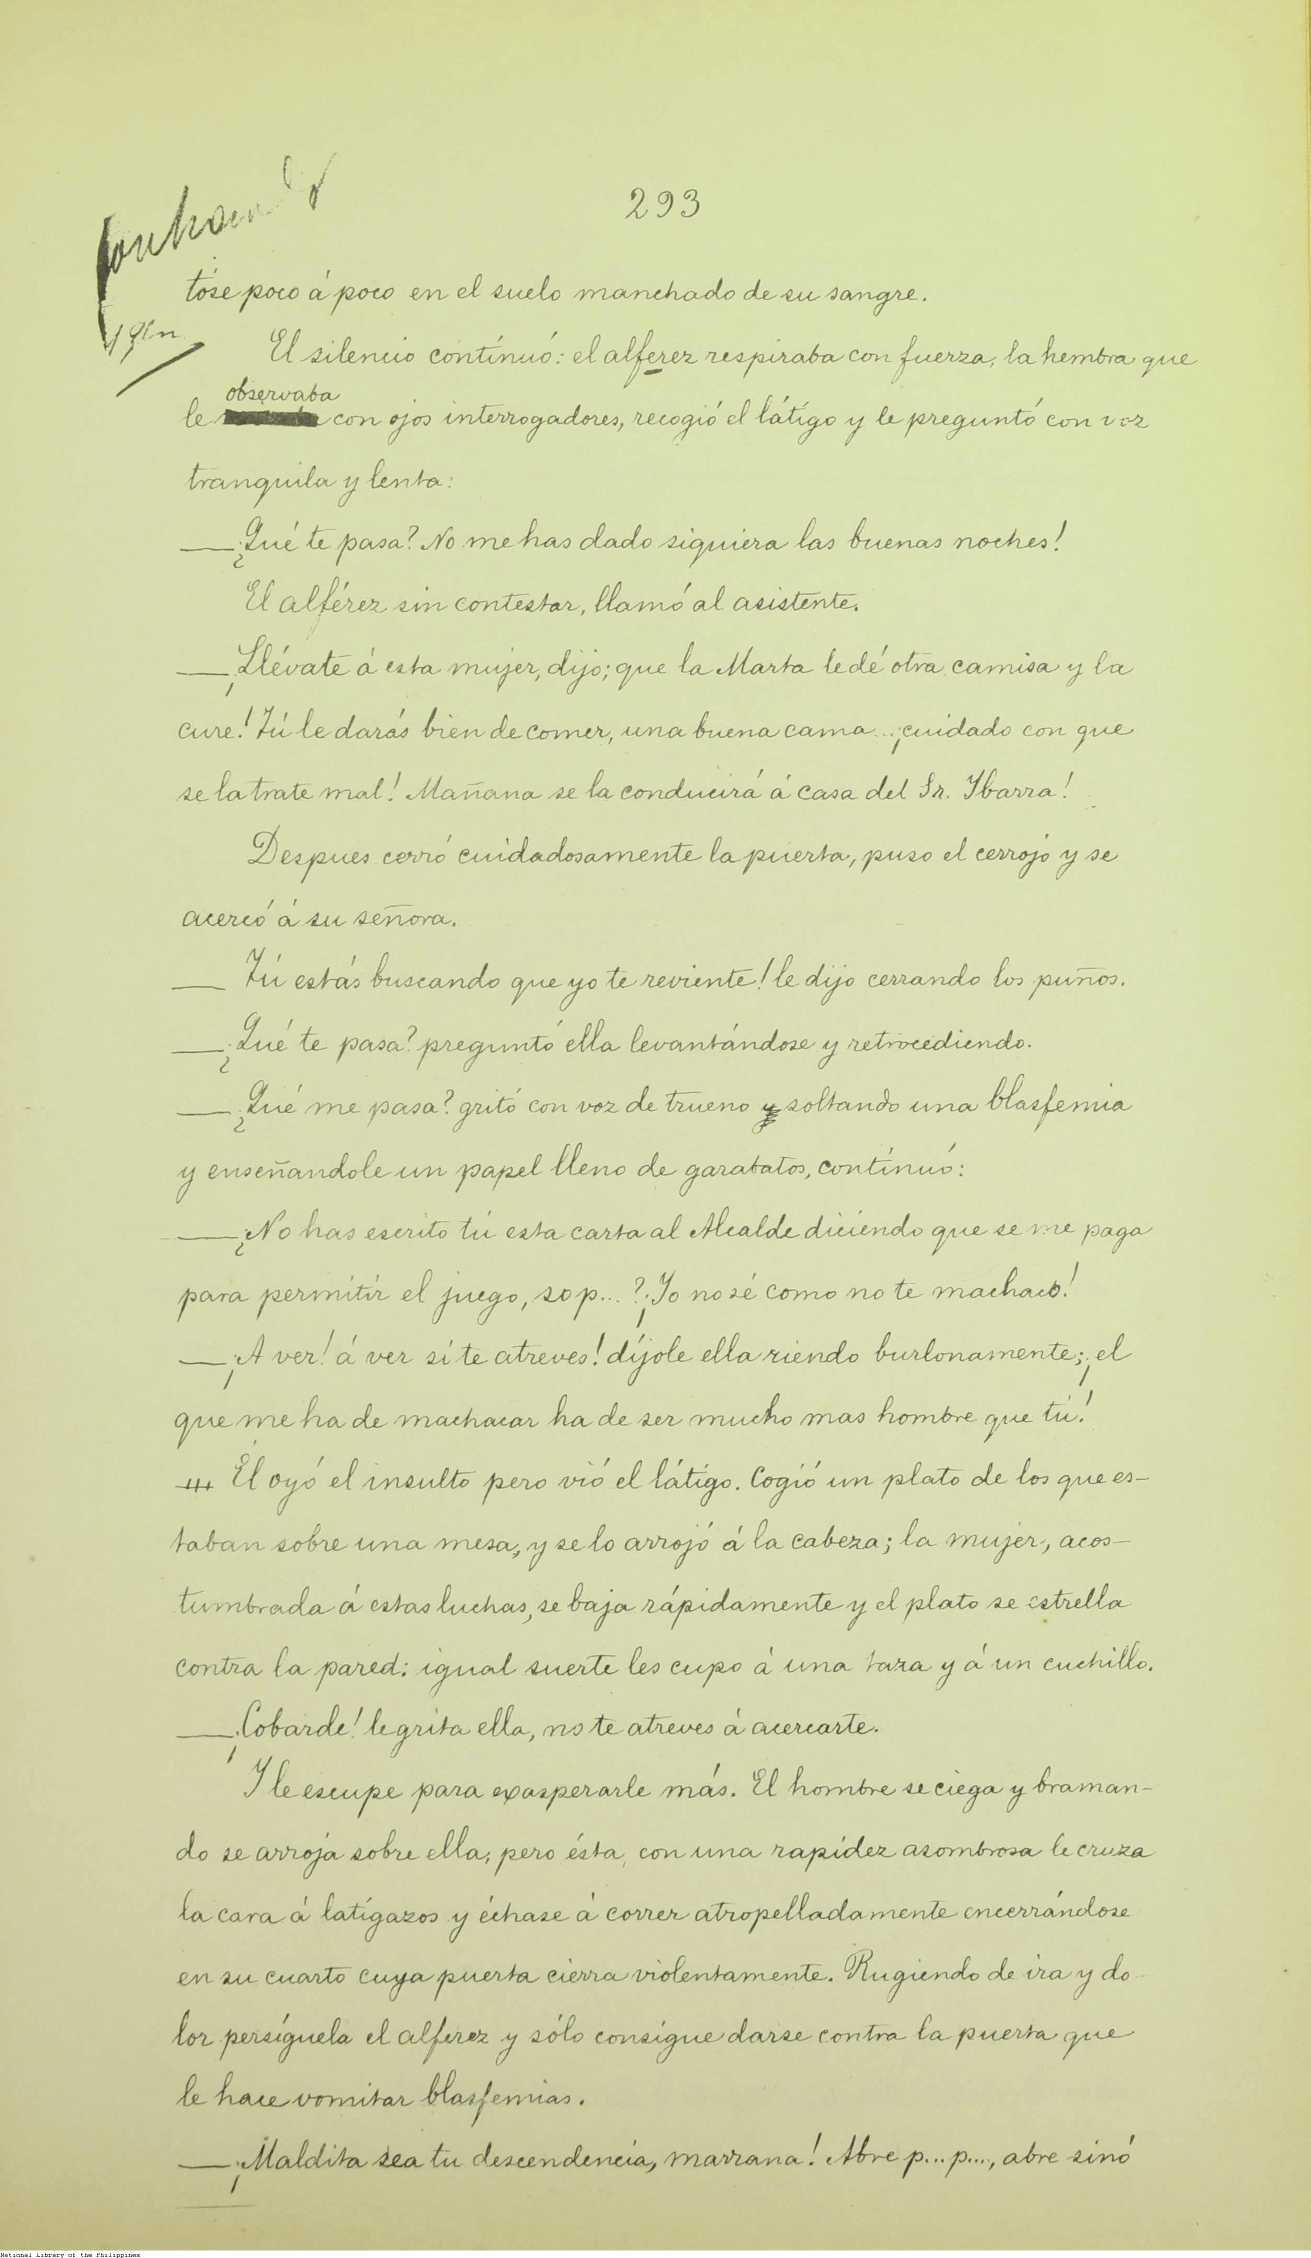 293
tóse poco á poco en el suelo manchado de su sangre.
El silencio continuó: el alferez respiraba con fuerza; la hembra que
observaba
le con ojos interrogadores, recogió el látigo y le preguntó con voz
tranquila y lenta:
—¿Qué te pasa? No me has dado siquiera las buenas noches!
El alférez sin contestar, llamó al asistente.
—¡Llévate á esta mujer, dijo; que la Marta le dé otra camisa y la
cure! Tú le darás bien de comer, una buena cama... ¡cuidado con que
se la trate mal! Mañana se la conducirá á casa del Sr. Ibarra!
Despues cerró cuidadosamente la puerta, puso el cerrojo y se
acercó á su señora.
— Tú estás buscando que yo te reviente! le dijo cerrando los puños.
—¿Qué te pasa? preguntó ella levantándose y retrocediendo.
—¿Qué me pasa? gritó con voz de trueno soltando una blasfemia
y enseñandole un papel lleno de garabatos, continuó:
—¿No has escrito tú esta carta al Alcalde diciendo que se me paga
para permitir el juego, so p...? ¡Yo no sé como no te machaco!
—¡A ver! á ver si te atreves! díjole ella riendo burlonamente; ¡el
que me ha de machacar ha de ser mucho mas hombre que tú!
Él oyó el insulto pero vió el látigo. Cogió un plato de los que es-
taban sobre una mesa, y se lo arrojó á la cabeza; la mujer, acos-
tumbrada á estas luchas, se baja rápidamente y el plato se estrella
contra la pared: igual suerte les cupo á una taza y á un cuchillo.
—¡Cobarde! le grita ella, no te atreves á acercarte.
Y le escupe para exasperarle más. El hombre se ciega y braman-
do se arroja sobre ella; pero ésta, con una rapidez asombrosa le cruza
la cara á latigazos y échase á correr atropelladamente encerrándose
en su cuarto cuya puerta cierra violentamente. Rugiendo de ira y do
lor persíguela el alferez y sólo consigue darse contra la puerta que
le hace vomitar blasfemias.
—¡Maldita sea tu descendencia, marrana! Abre p... p..., abre sinó
National Library of the Philippines